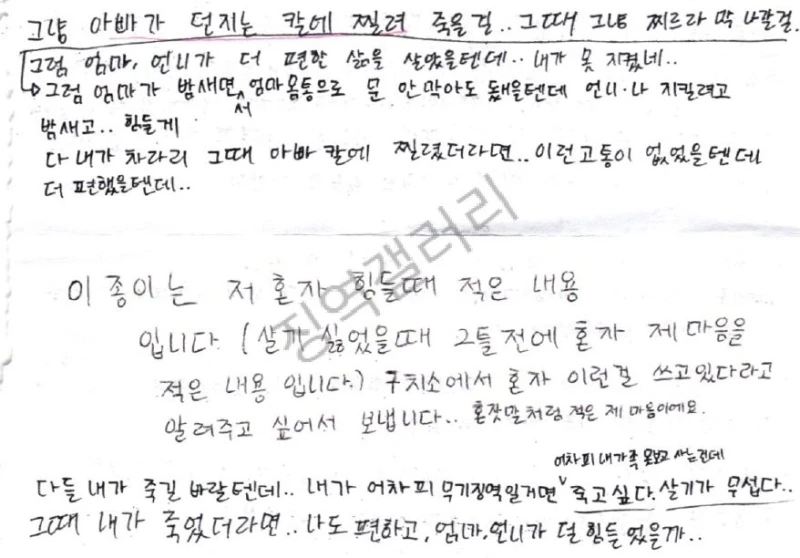 그냥 아빠가 던지는 칼에 찔려 죽을걸.. 그때 그냥 찌르라 막 나갈걸.
그럼 엄마, 언니가 더 편한 삶을 살았을텐데.. 내가 못 지켰네..
그럼 엄마가 밤새면서 엄마몸통으로 문 안막아도 됐을텐데 언니·나 지킬려고
밤새고.. 힘들게
다 내가 차라리 그때 아빠 칼에 찔렸더라면.. 이런고통이 없었을텐데
더 편했을텐데..
이 종이는 저 혼자 힘들때 적은 내용
입니다. (살기 싫었을때 2틀전에 혼자 제 마음을
적은 내용 입니다.) 구치소에서 혼자 이런걸 쓰고있다라고
알려주고 싶어서 보냅니다.. 혼잣말처럼 적은 제 마음이에요.
어차피 내가족 못보고 사는건데
다들 내가 죽길 바랄텐데.. 내가 어차피 무기징역일거면 죽고싶다. 살기가 무섭다..
그때 내가 죽었더라면.. 나도 편하고, 엄마, 언니가 덜 힘들었을까..
징역갤러리